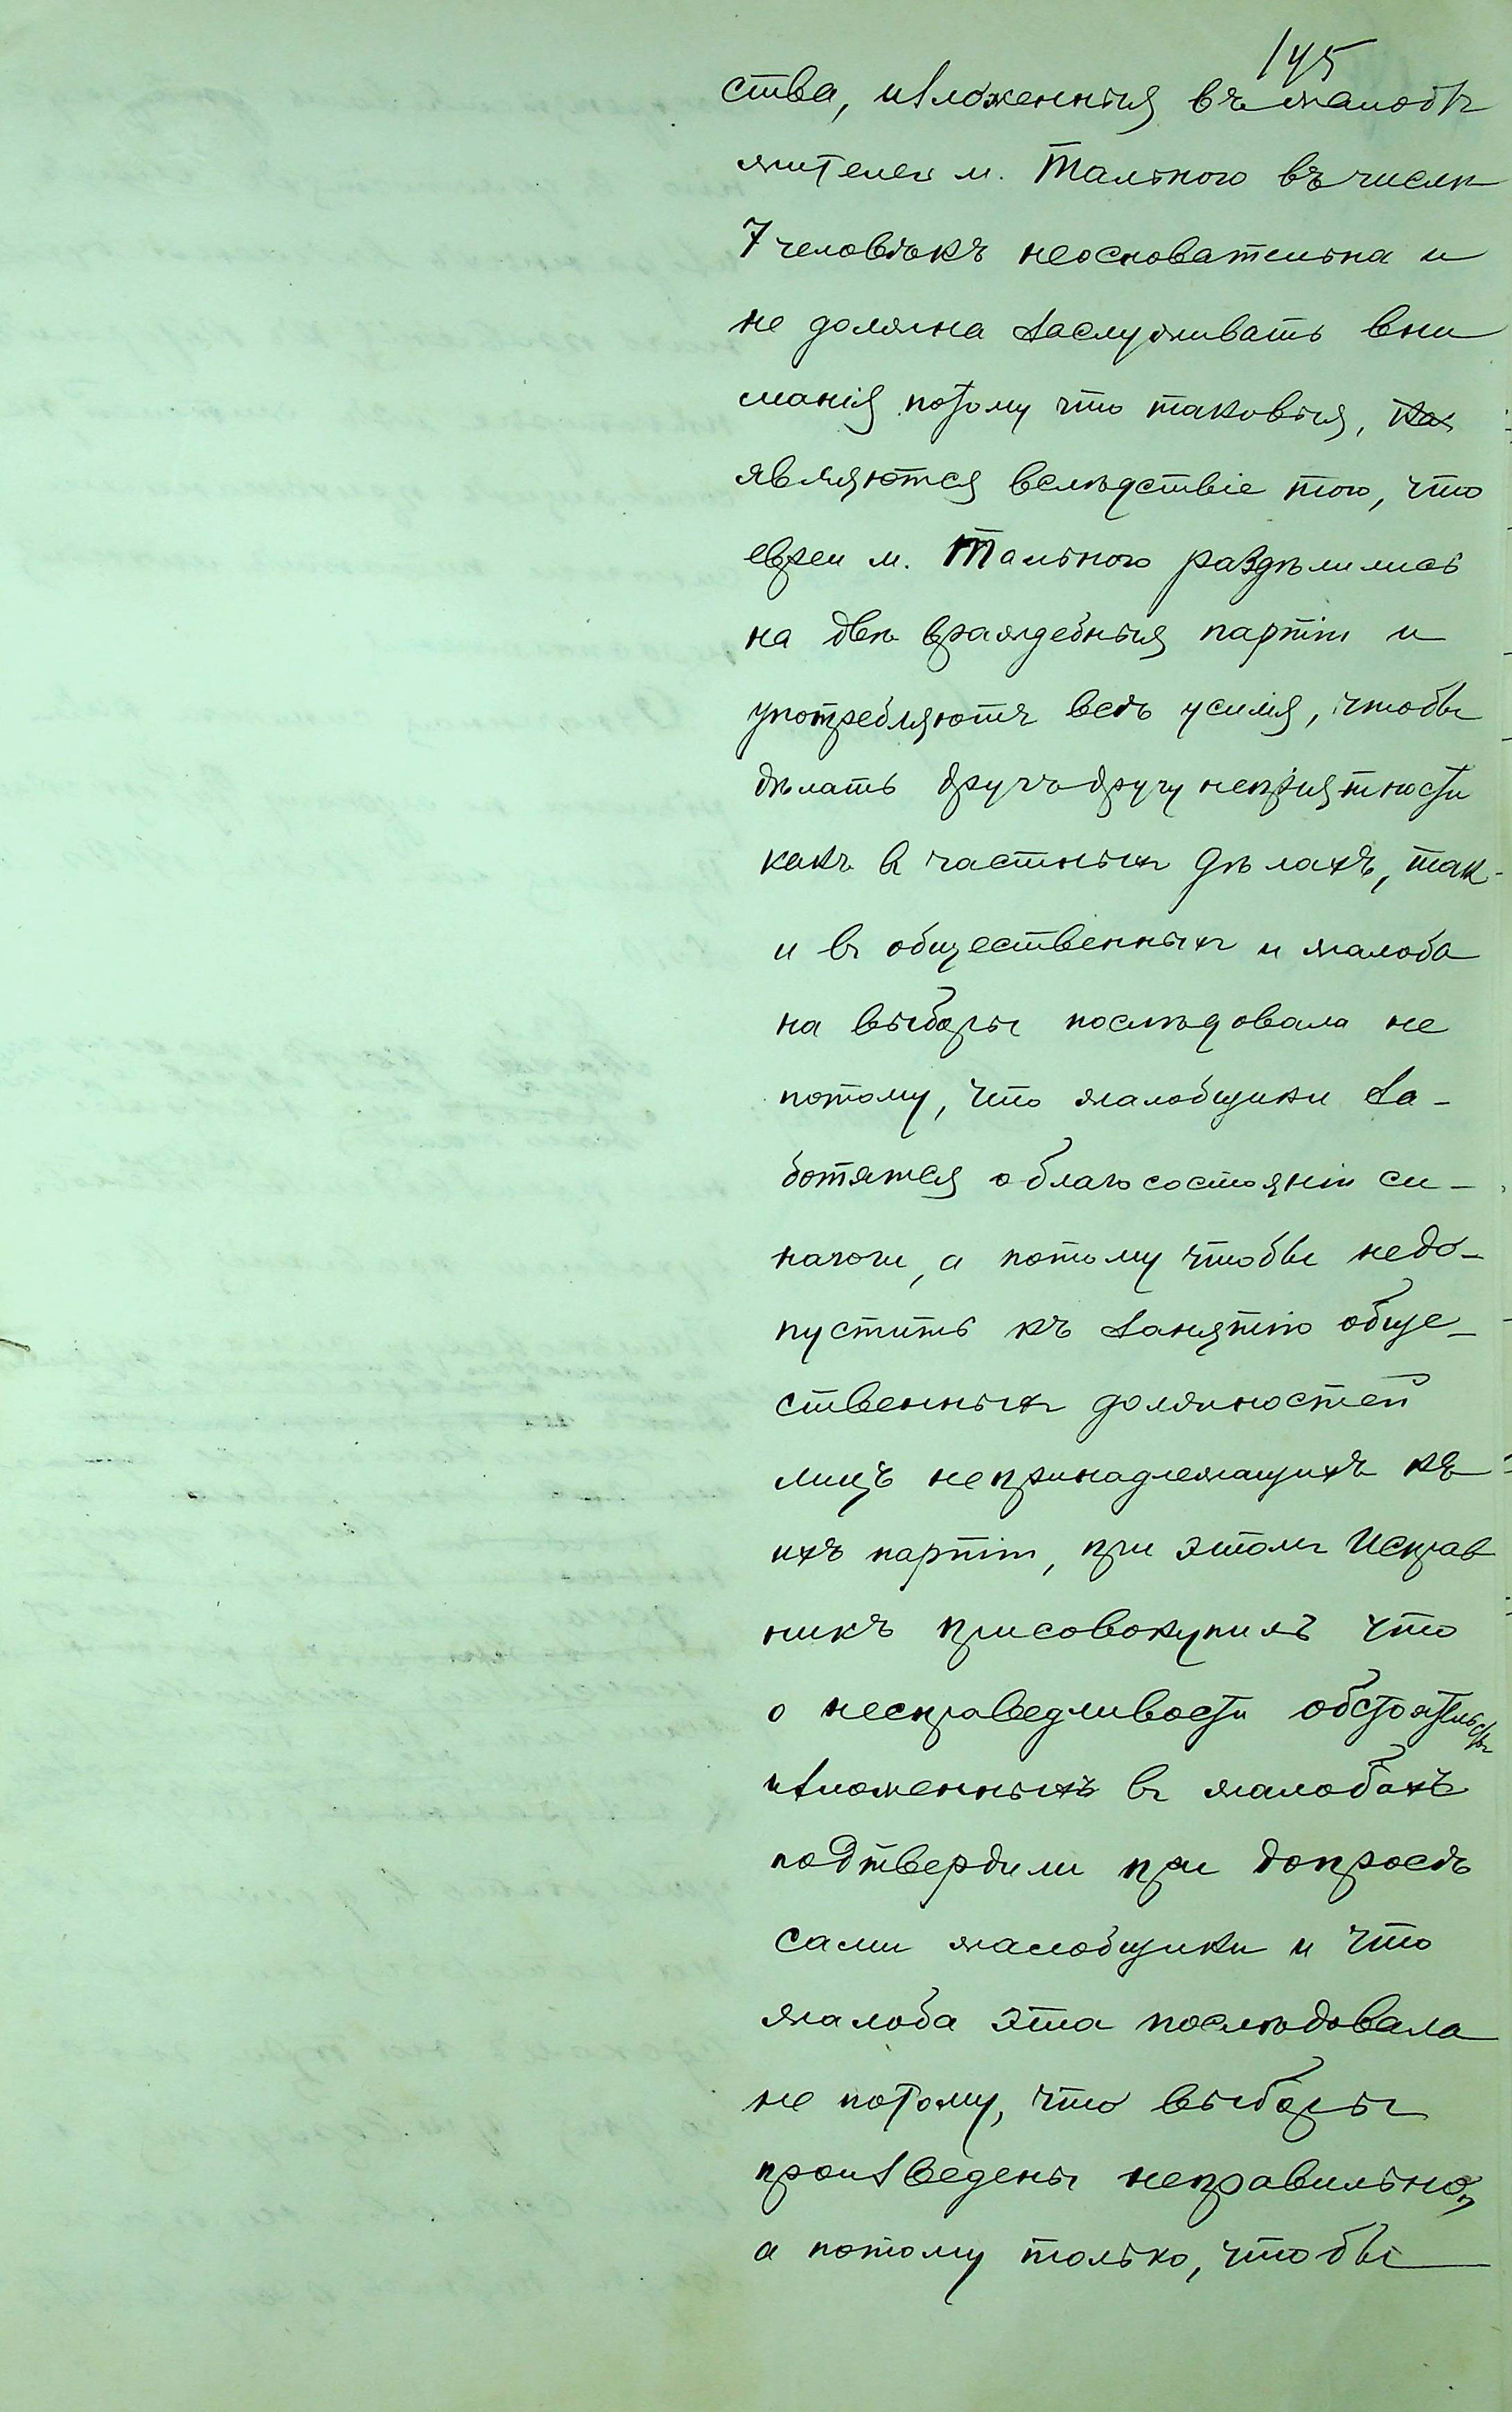 145
ства, изложенныя въ жалобѣ
жителей м. Тального въ числѣ
7 человѣкъ неосновательна и
не должна заслуживать вни
манія потому что таковыя, как
являются вслѣдствіе того, что
евреи м. Тального раздѣлились
на двѣ враждебныя партіи и
употребляютъ всѣ усилія, чтобы
дѣлать другъ другу непріятности
какъ въ частныхъ дѣлахъ, так
и въ общественныхъ и жалоба
на выборы послѣдовала не
потому, что жалобщики за-
ботятся о благосостояніи си-
нагоги, а потому чтобы недо-
пустить къ занятію обще-
ственныхъ должностей
лицъ непринадлежащихъ къ
ихъ партіи, при этомъ Исправ
никъ присовокупилъ что
о несправедливости обстоятельствъ
изложенныхъ въ жалобахъ
подтвердили при допросѣ
сами жалобщики и что
жалоба эта послѣдовала
не потому, что выборы
произведены неправильно,
а потому только, чтобы